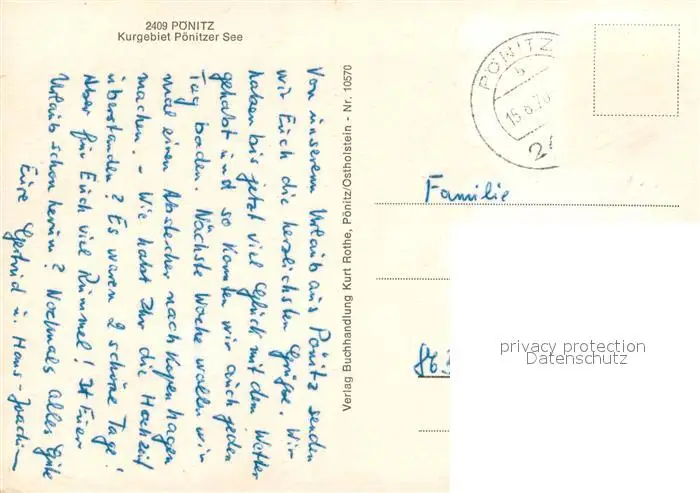 2409 PÖNITZ
Kurgebiet Pönitzer See
Von unserem Urlaub aus Pönitz senden
wir Euch die herzlichsten Grüße. Wir
haben bis jetzt viel Glück mit dem Wetter
gehabt und so konnten wir auch jeden
Tag baden. Nächste Woche wollen wir
mal einen Abstecher nach Kopenhagen
machen. - Wie habt Ihr die Hochzeit
überstanden? Es waren 2 schöne Tage!
Aber für Euch viel Rummel! Ist Euer
Urlaub schon herum? Nochmals alles Gute
Eure Gertrud u. Hans-Joachim
Verlag Buchhandlung Kurt Rothe, Pönitz/Ostholstein - Nr. 10570
PÖNITZ
b
15.6.76
24
Familie
privacy protection
Datenschutz